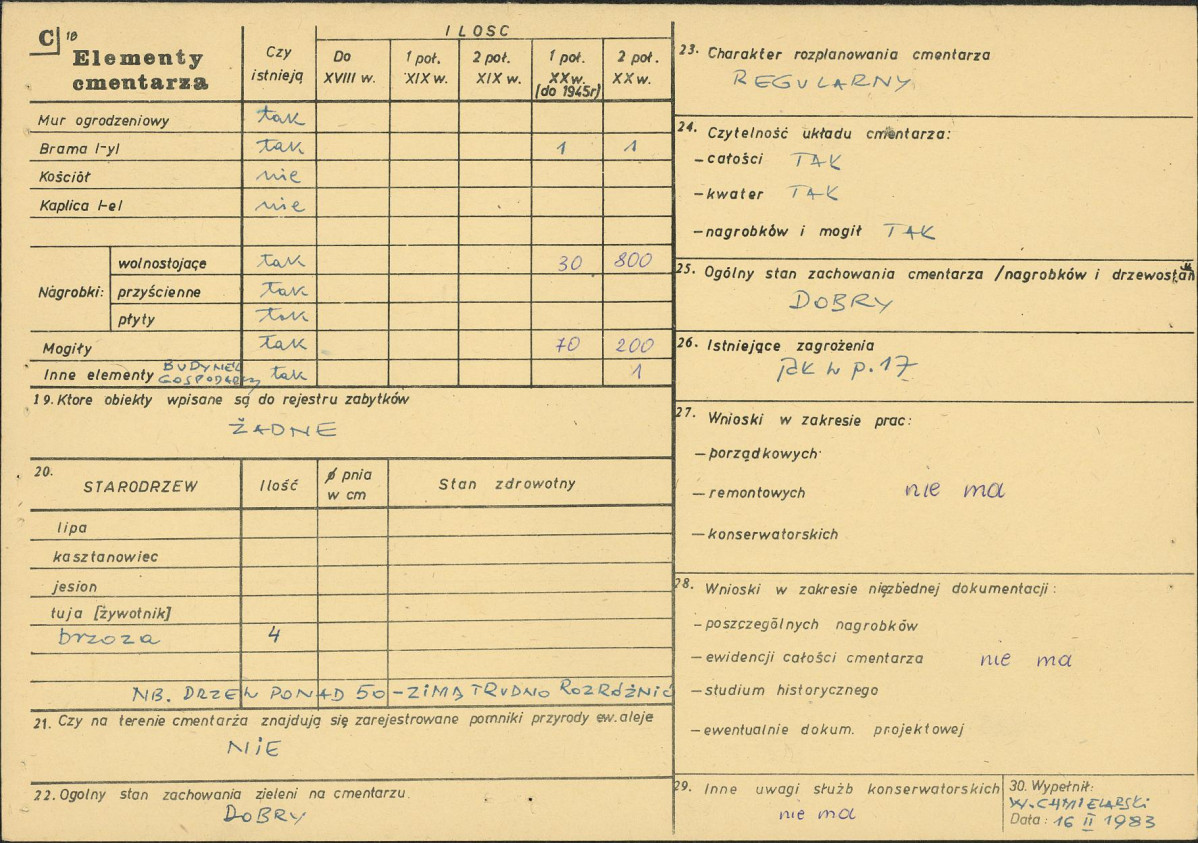 C 18 Elementy cmentarza
Czy istnieją
ILOSC
Do XVIII w.
1 poł. XIX w.
2 poł. XIX w.
1 poł. XX w. (do 1945r)
2 poł. XX w.
Mur ogrodzeniowy tak
Brama /-y/ tak 1 1
Kościół nie
Kaplica /-e/ nie
Nagrobki:
wolnostojące tak 30 800
przyścienne tak
płyty tak
Mogiły tak 70 200
Inne elementy BUDYNEK GOSPODARCZY tak 1
19. Ktore obiekty wpisane są do rejestru zabytków
ŻADNE
20.
STARODRZEW
Ilość
ø pnia w cm
Stan zdrowotny
lipa
kasztanowiec
jesion
tuja [żywotnik]
brzoza 4
NB. DRZEW PONAD 50 – ZIMĄ TRUDNO ROZRÓŻNIĆ
21. Czy na terenie cmentarża znajdują się zarejestrowane pomniki przyrody ew. aleje
NIE
22. Ogolny stan zachowania zieleni na cmentarzu.
DOBRY
23. Charakter rozplanowania cmentarza
REGULARNY
24. Czytelność układu cmentarza:
– całości TAK
– kwater TAK
– nagrobków i mogił TAK
25. Ogólny stan zachowania cmentarza /nagrobków i drzewostan
DOBRY
26. Istniejące zagrożenia
jak w p. 17
27. Wnioski w zakresie prac:
– porządkowych
– remontowych nie ma
– konserwatorskich
28. Wnioski w zakresie niezbędnej dokumentacji:
– poszczególnych nagrobków
– ewidencji całości cmentarza nie ma
– studium historycznego
– ewentualnie dokum. projektowej
29. Inne uwagi służb konserwatorskich
nie ma
30. Wypełnił:
W. CHMIELARSKI
Data: 16 II 1983